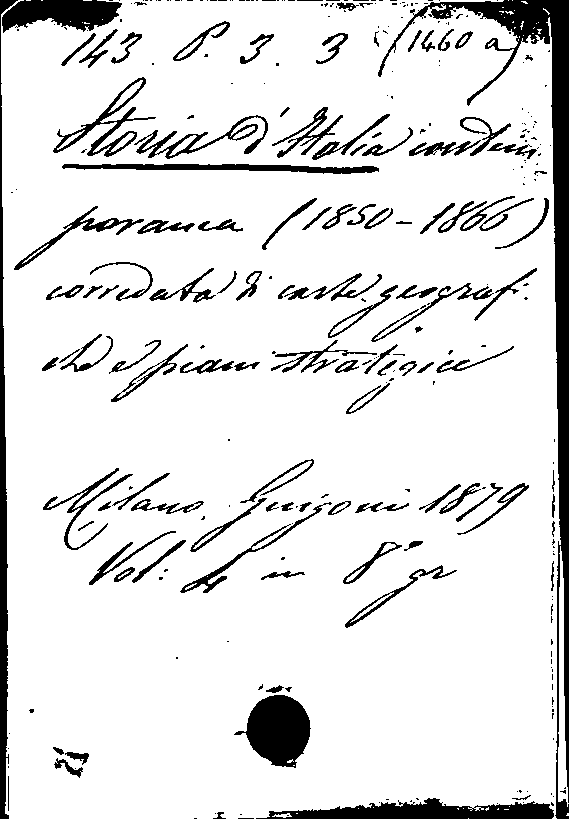 143. P. 3. 3 (1460 a)
Storia d'Italia contem
poranea (1850-1866)
corredata di carte geografi.
che e piani strategici
Milano. Guigoni 1879
Vol: 4 in 8° gr